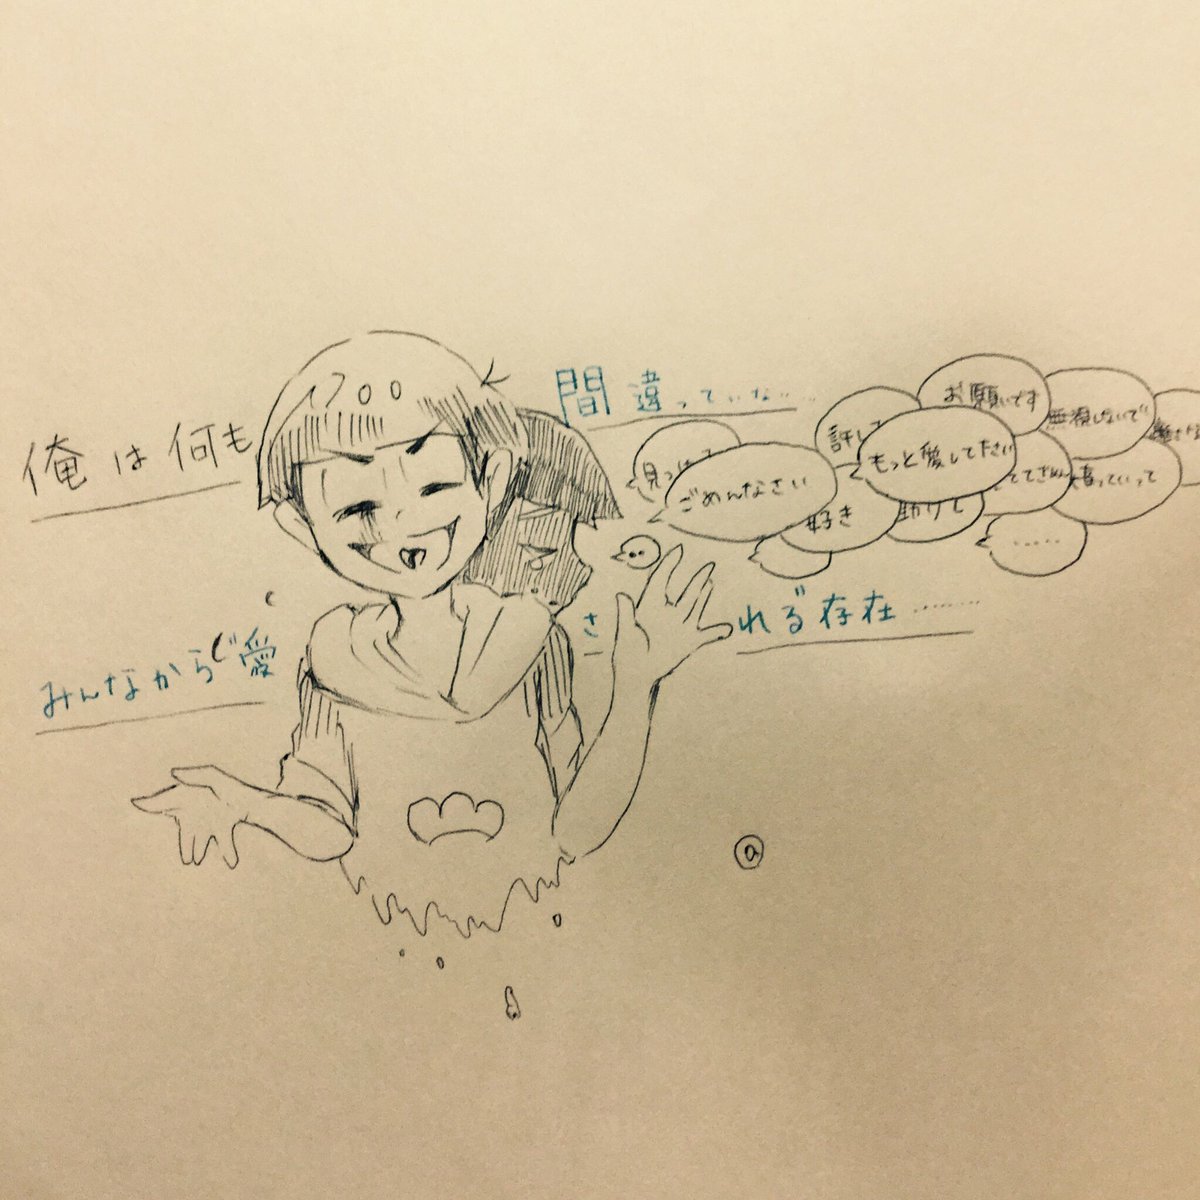 俺は何も
間違っていな……
見つけて
ごめんなさい
許して
お願いです
もっと愛してださい
無視しないで
好き
助けし
違っていって
……
‥
みんなから愛
されぶ存在………
ⓐ